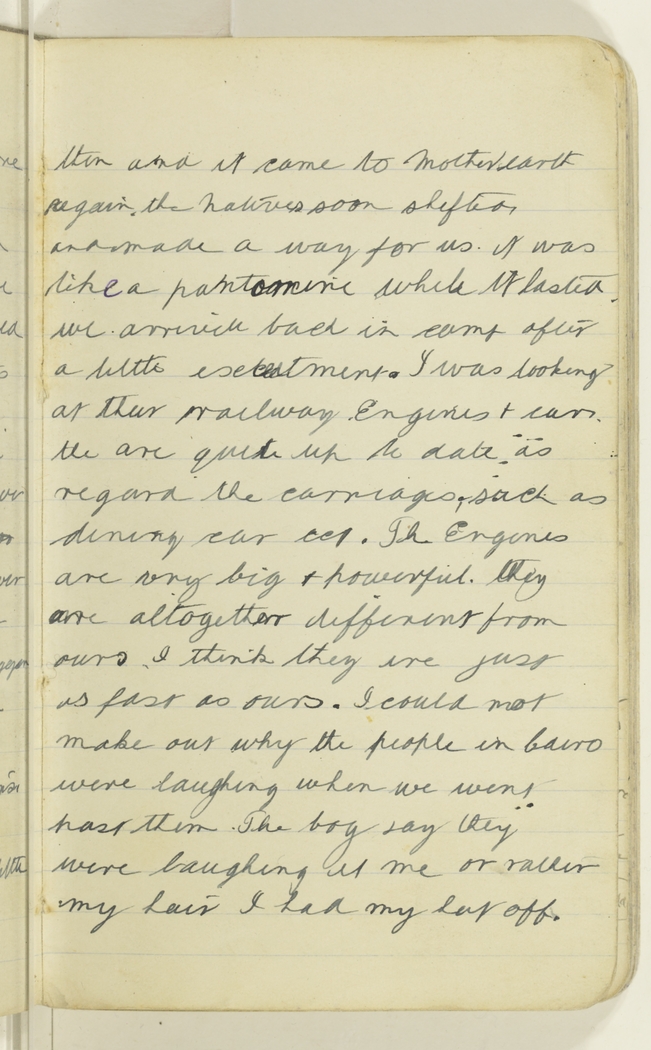 then and it came to Mother earth
again. the Natives soon shifted
and made a way for us. it was
like a pantomine while it lasted.
we arrived back in camp after
a little excetment. I was looking
at their railway Engines & cars.
the are quite up to date as
regard the carriages, such as
dining car ect. The Engines
are very big & powerful. they
are altogether different from
ours. I think they are just
as fast as ours. I could not
make out why the people in Cairo
were laughing when we went
past them. The boy say they
were laughing at me or rather
my hair I had my hat off.